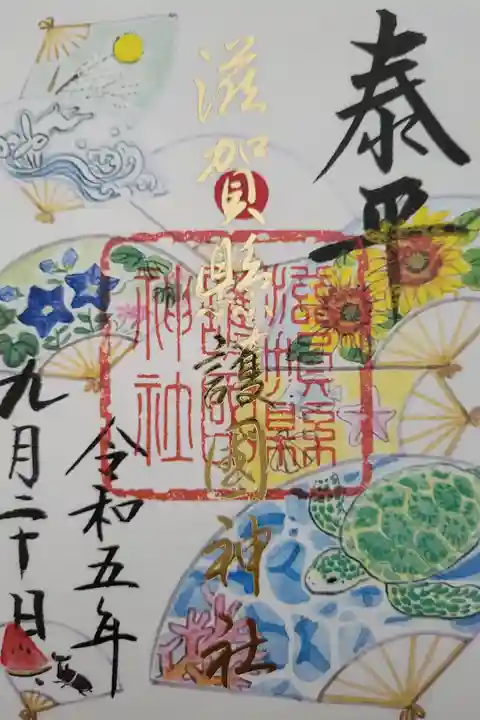 泰平
滋賀縣護国神社
滋賀縣護國神社
令和五年
九月二十日